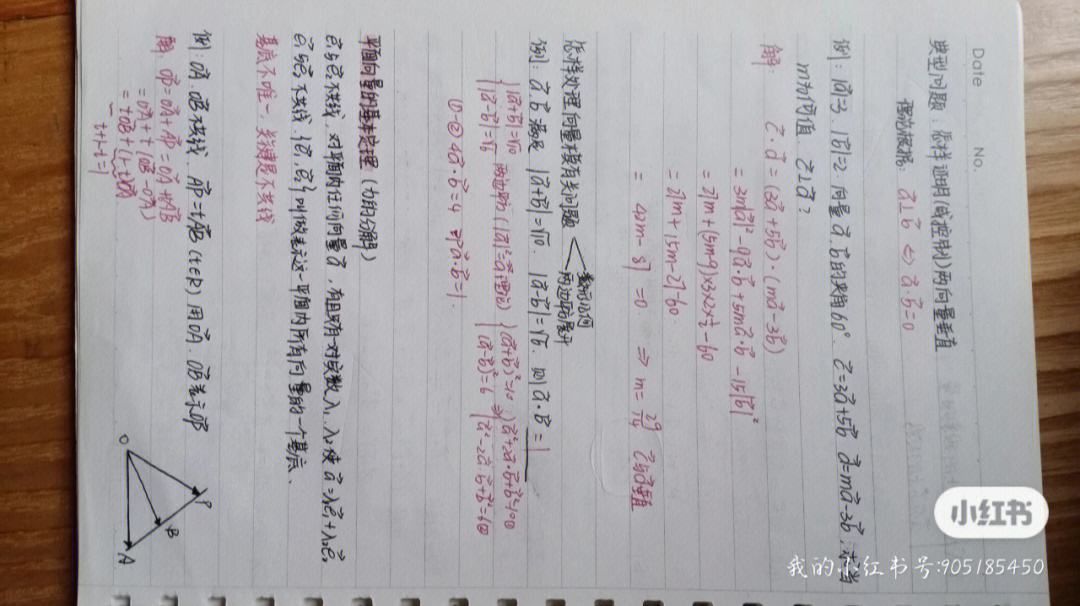 Date No.
典型问题：怎样证明(或应用)两向量垂直
很好依据： a⃗⊥b⃗ ⇔ a⃗·b⃗=0
例：|a⃗|=3, |b⃗|=2 向量a⃗,b⃗的夹角60°. c⃗=3a⃗+5b⃗ d⃗=ma⃗-3b⃗. 求当
m为何值, c⃗⊥d⃗?
解： c⃗·d⃗=(3a⃗+5b⃗)·(ma⃗-3b⃗)
=3m|a⃗|²-9a⃗·b⃗+5ma⃗·b⃗-15|b⃗|²
=27m+(5m-9)×3×2×½-60
=27m+15m-27-60
= 42m-87 =0 ⇒ m=29/14 c⃗与d⃗垂直
怎样处理向量模有关问题
数形沟通
两边平方展开
例：a⃗ b⃗ 满足 |a⃗+b⃗|=√10. |a⃗-b⃗|=√6. 则 a⃗·b⃗=1
{|a⃗+b⃗|=√10 |a⃗-b⃗|=√6 两边平方(|a⃗|²=a⃗²理论) {(a⃗+b⃗)²=10 (a⃗-b⃗)²=6 ⇒ {a⃗²+2a⃗·b⃗+b⃗²=10① a⃗²-2a⃗·b⃗+b⃗²=6②
①-② 4a⃗·b⃗=4 ⇒ a⃗·b⃗=1.
平面向量的基本定理 (力的分解)
e⃗₁与e⃗₂不共线 对平面内任一向量a⃗, 有且只有一对实数λ₁ λ₂ 使 a⃗=λ₁e⃗₁+λ₂e⃗₂
e⃗₁与e⃗₂不共线. {e⃗₁,e⃗₂}叫做表示这一平面内所有向量的一个基底.
基底不唯一, 关键是不共线
例：OA⃗, OB⃗不共线, AP⃗=tAB⃗ (t∈R) 用OA⃗, OB⃗表示OP⃗
解：OP⃗=OA⃗+AP⃗=OA⃗+tAB⃗
=OA⃗+t(OB⃗-OA⃗)
=tOB⃗+(1-t)OA⃗
t+1-t=1
O P B A
小红书
我的小红书号:905185450